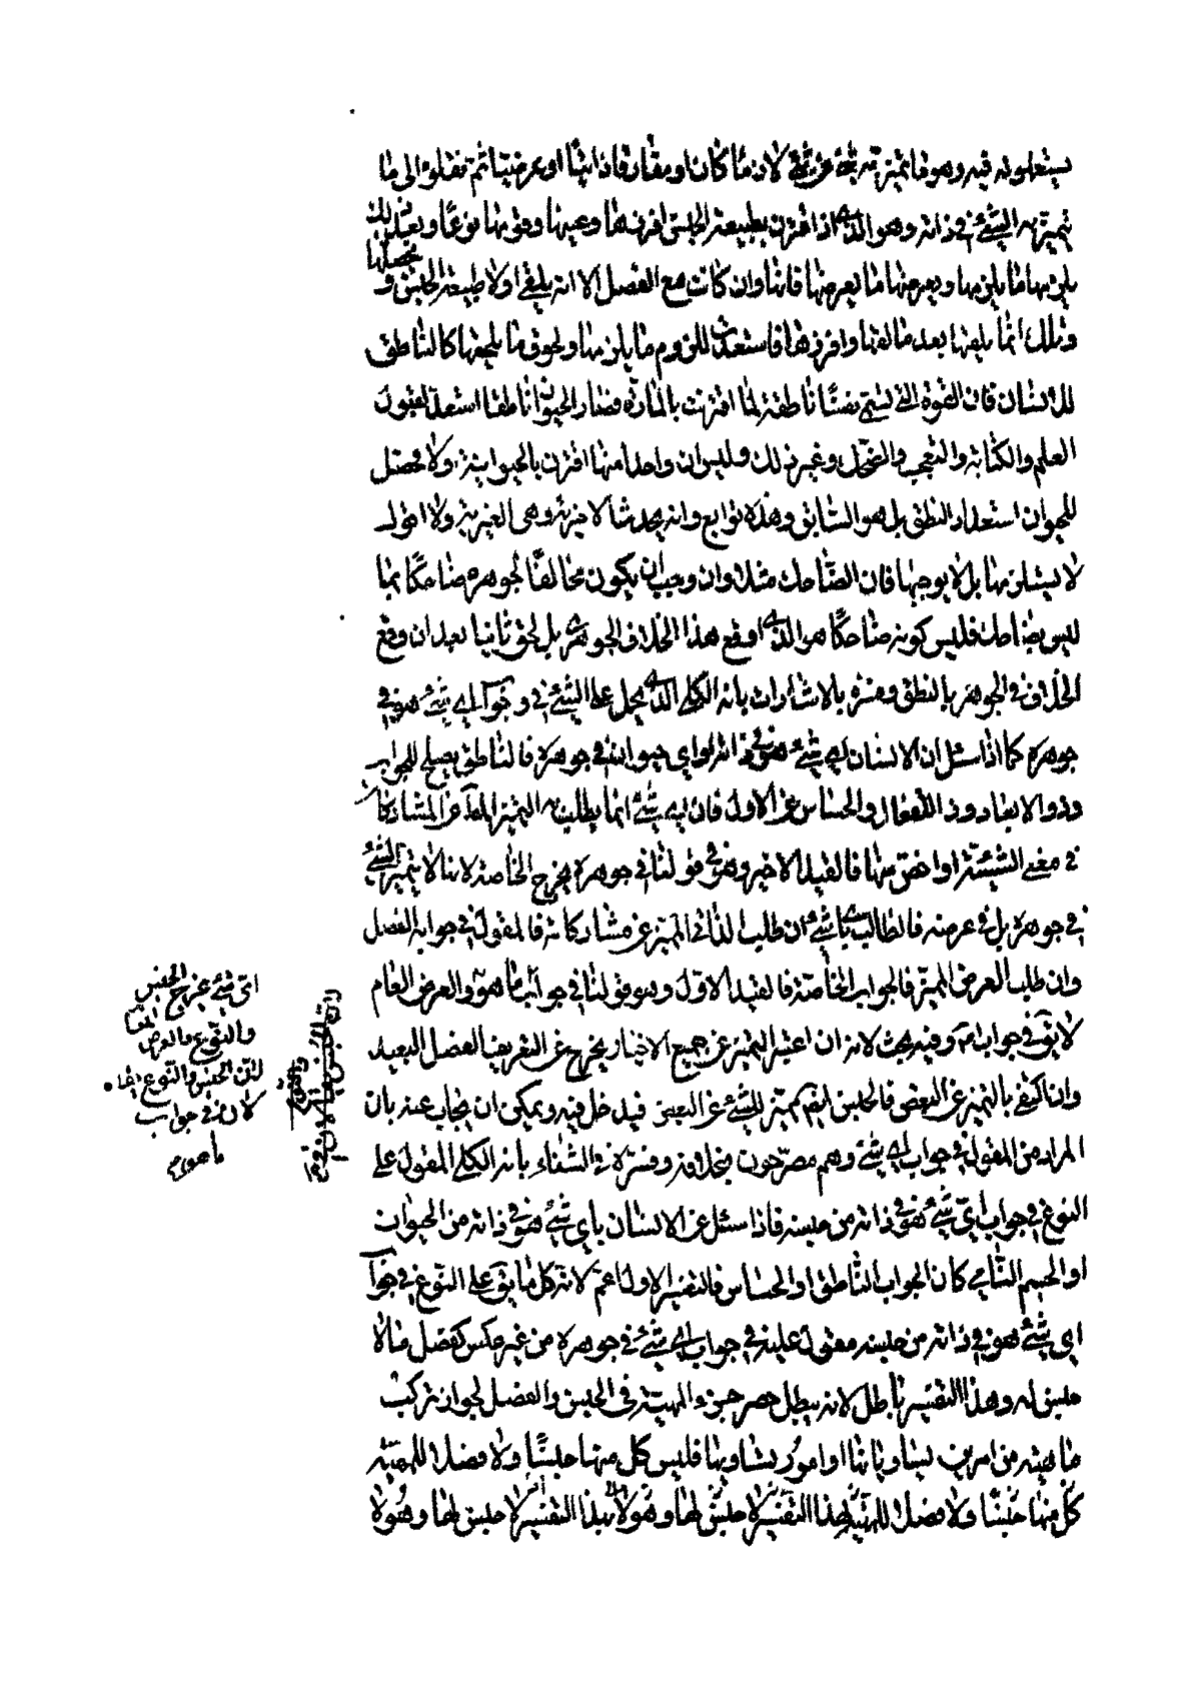 يستعلونه فيه وهو ما يتميز به شئ عن شئ لازما كان او مفارقا ذاتيا او عرضيا ثم نقلوه الى ما
يتميز به الشئ في ذاته وهو الذي اذا اقترن بطبيعة الجنس افرزها وعينها وقومها نوعا وبعد ذلك
يلزمها ما يلزمها ويعرضها ما يعرضها فانها وان كانت مع الفصل الا انه يلقى اولا طبيعة الجنس و
يحصلها
وتلك انما يلحقها بعد ما لقيها وافرزها فاستعدت للزوم ما يلزمها ولحوق ما يلحقها كالناطق
للانسان فان القوة التي تسمى نفسا ناطقة لما اقترنت بالمادة فصار الحيوان ناطقا استعد لقبول
العلم والكتابة والتعجب والضحك وغير ذلك وليس ان واحدا منها اقترن بالحيوانية اولا فحصل
للحيوان استعداد النطق بل هو السابق وهذه توابع وانه يحدث الاخرية وهي الغيرية ولا اقول
لا يستلزمها بل لا يوجبها فان الضاحك مثلا وان وجب ان يكون مخالفا لجوهره ضاحكا بما
ليس بضاحك فليس كونه ضاحكا هو الذي اوقع هذا الخلاف الجوهري بل لحق ثانيا بعد ان وقع
الخلاف في الجوهر بالنطق وفسره بالاشارات بانه الكلي الذي يحمل على الشئ في جواب اي شئ هو في
جوهره كما اذا سئل ان الانسان اي شئ هو في ذاته او اي حيوان في جوهره فالناطق يصلح للجواب
وذو الابعاد وذو النفس والحساس عن الاول فان اي شئ انما يطلب به التميز المطلق عن المشاركات
في معنى الشيئية او اخص منها فالقيد الاخير وهو قولنا في جوهره يخرج الخاصة لانها لا تميز الشئ
في جوهره بل في عرضه فالطالب باي شئ ان طلب الذاتي المميز عن مشاركاته فالمقول في جوابه الفصل
وان طلب العرضي المميز فالجواب الخاصة فالقيد الاول وهو قولنا في جواب ما هو والعرض العام
لا يقال في جواب وفيه بحث لانه ان اعتبر التميز عن جميع الاغيار يخرج عن التعريف الفصل البعيد
وان اكتفى بالتميز عن البعض فالجنس ايضا مميز للشئ عن البعض فيدخل فيه ويمكن ان يجاب عنه بان
المراد من المقول في جواب اي شئ وهم مصرحون بخلافه وفسره في الشفاء بانه الكلي المقول على
النوع في جواب اي شئ هو في ذاته من جنسه فاذا سئل عن الانسان باي شئ هو في ذاته من الحيوان
او الجسم النامي كان الجواب الناطق او الحساس فالتفسير الاول اعم لانه كل ما يقال على النوع في جواب
اي شئ هو في ذاته من جنسه مقول عليه في جواب اي شئ في جوهره من غير عكس كفصل ما لا
جنس له وهذا التفسير باطل لانه يبطل حصر جزء المهية في الجنس والفصل لجواز تركيب
ماهية من امرين يساويانها او امور يساويها فليس كل منها جنسا ولا فصلا للمهية
كل منها جنسا ولا فصلا للمهية بهذا التفسير لا جنس لها وهؤلاء بهذا التفسير لا جنس لها وهؤلاء
اي شئ يخرج الجنس
والنوع والعرض العام
لان الجنس والنوع
لا في جواب
ما هو